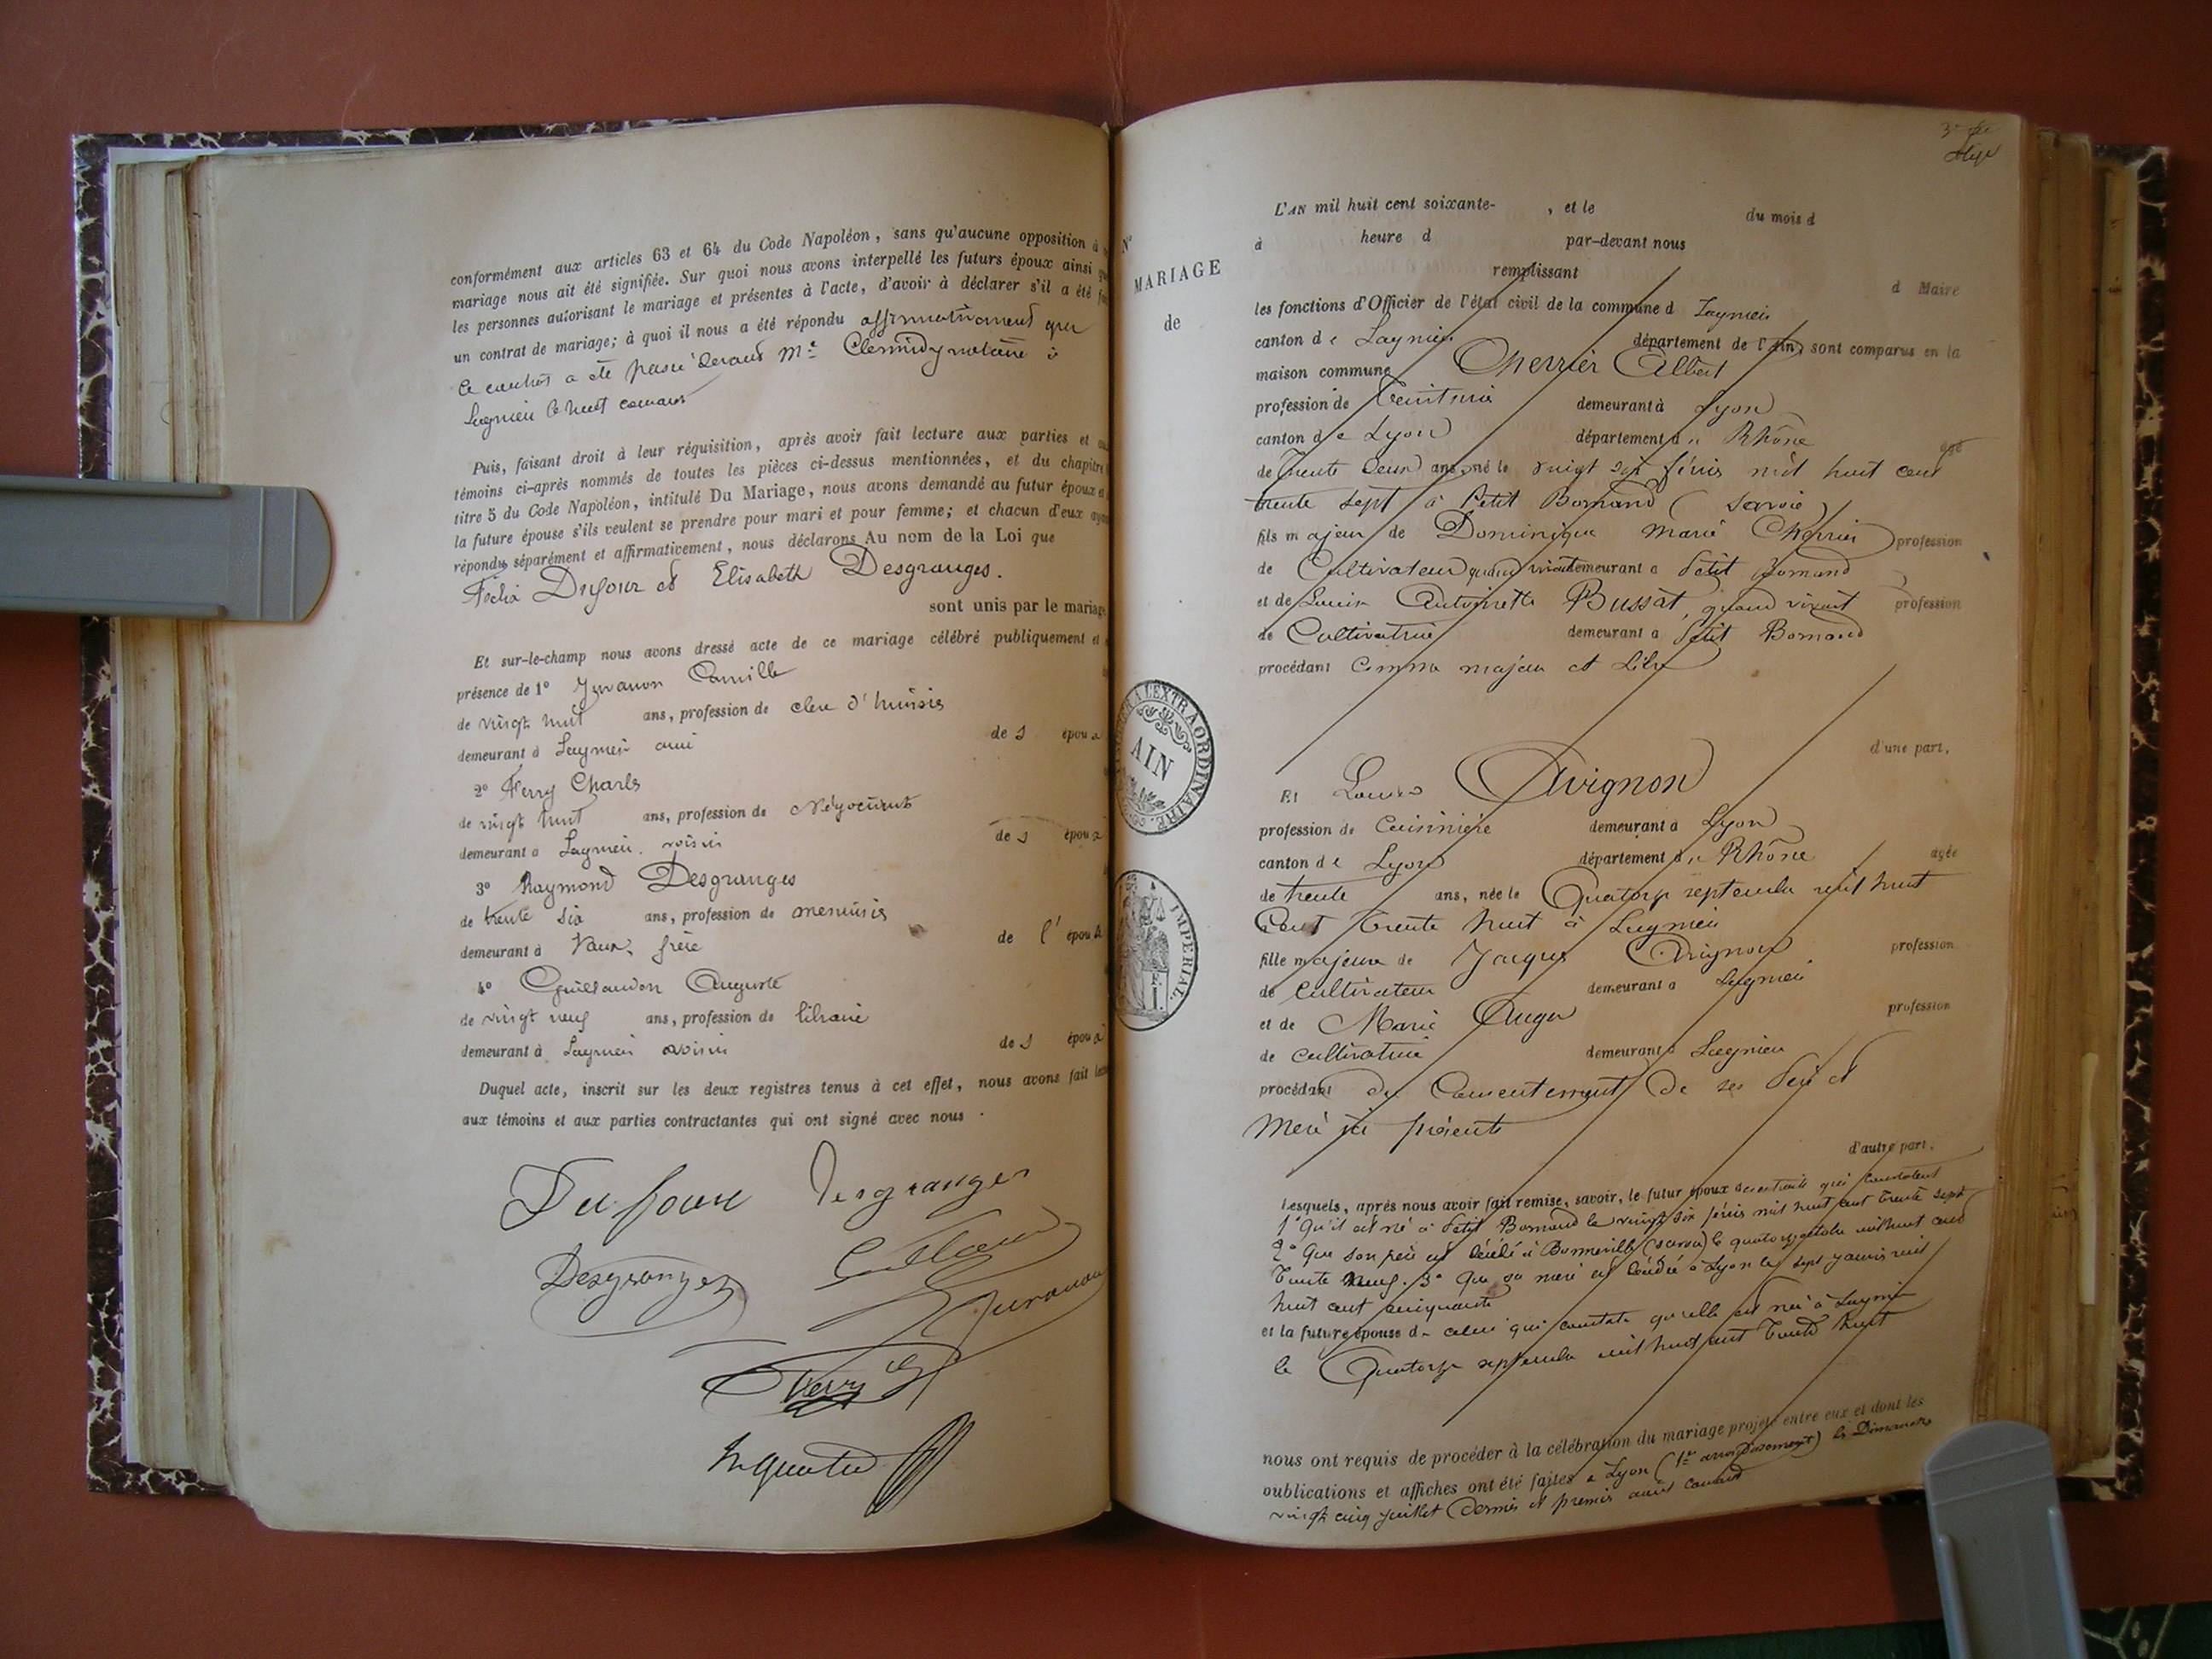 conformément aux articles 63 et 64 du Code Napoléon, sans qu'aucune opposition à
mariage nous ait été signifiée. Sur quoi nous avons interpellé les futurs époux ainsi
les personnes autorisant le mariage et présentes à l'acte, d'avoir à déclarer s'il a été
un contrat de mariage; à quoi il nous a été répondu affirmativement que
ce contrat a été passé devant Me notaire à
Lagnieu le huit courant
Puis, faisant droit à leur réquisition, après avoir fait lecture aux parties et
témoins ci-après nommés de toutes les pièces ci-dessus mentionnées, et du chapitre
titre 5 du Code Napoléon, intitulé Du Mariage, nous avons demandé au futur époux et
la future épouse s'ils veulent se prendre pour mari et pour femme; et chacun d'eux
répondu séparément et affirmativement, nous déclarons Au nom de la Loi que
Félix Dufour et Elisabeth Desgranges.
sont unis par le mariage
Et sur-le-champ nous avons dressé acte de ce mariage célébré publiquement et
présence de 1° Camille
de vingt huit ans, profession de clerc d'huissier
demeurant à Lagnieu ami des époux
2° Ferry Charles
de vingt huit ans, profession de Négociant
demeurant à Lagnieu. voisin des époux
3° Raymond Desgranges
de trente six ans, profession de menuisier
demeurant à Vaux, frère de l'épouse
4° Auguste
de vingt neuf ans, profession de libraire
demeurant à Lagnieu voisin des époux
Duquel acte, inscrit sur les deux registres tenus à cet effet, nous avons fait
aux témoins et aux parties contractantes qui ont signé avec nous.
Dufour Desgranges
Desgranges
Ferry
N°
MARIAGE
de
A L'EXTRAORDINAIRE
AIN
IMPERIAL
L'AN mil huit cent soixante- , et le du mois d
à heure d par-devant nous
remplissant
d Maire
les fonctions d'Officier de l'état civil de la commune d Lagnieu
canton de Lagnieu département de l'Ain, sont comparus en la
maison commune Cherrier Albert
profession de demeurant à Lyon
canton de Lyon département du Rhône âgé
de trente deux ans, né le vingt six mil huit cent
trente sept à Petit Bornand (Savoie)
fils majeur de Dominique Marie Cherrier profession
de Cultivateur quand vivait demeurant à Petit Bornand
et de Antoinette Bussat, quand vivait profession
de Cultivatrice demeurant à Petit Bornand
procédant comme majeur et libre
d'une part,
Et Avignon
profession de Cuisinière demeurant à Lyon
canton de Lyon département du Rhône âgée
de trente ans, née le Quatorze septembre mil huit
Cent trente huit à Lagnieu
fille majeure de Jacques Avignon profession
de Cultivateur demeurant à Lagnieu
et de Marie Auger profession
de cultivatrice demeurant à Lagnieu
procédant du Consentement de ses Père et
Mère ici présents
d'autre part.
Lesquels, après nous avoir fait remise, savoir, le futur époux des extraits qui constatent
1° Qu'il est né à Petit Bornand le vingt six mil huit cent trente sept
2° Que son père est décédé à Bonneville (Savoie) le quatorze octobre mil huit cent
trente neuf. 3° Que sa mère est décédée à Lyon le sept janvier mil
huit cent cinquante
et la future épouse de celui qui constate qu'elle est née à Lagnieu
le Quatorze septembre mil huit cent trente huit
nous ont requis de procéder à la célébration du mariage projeté entre eux et dont les
publications et affiches ont été faites à Lyon (1er arrondissement) les Dimanches
vingt cinq juillet dernier et premier août courant